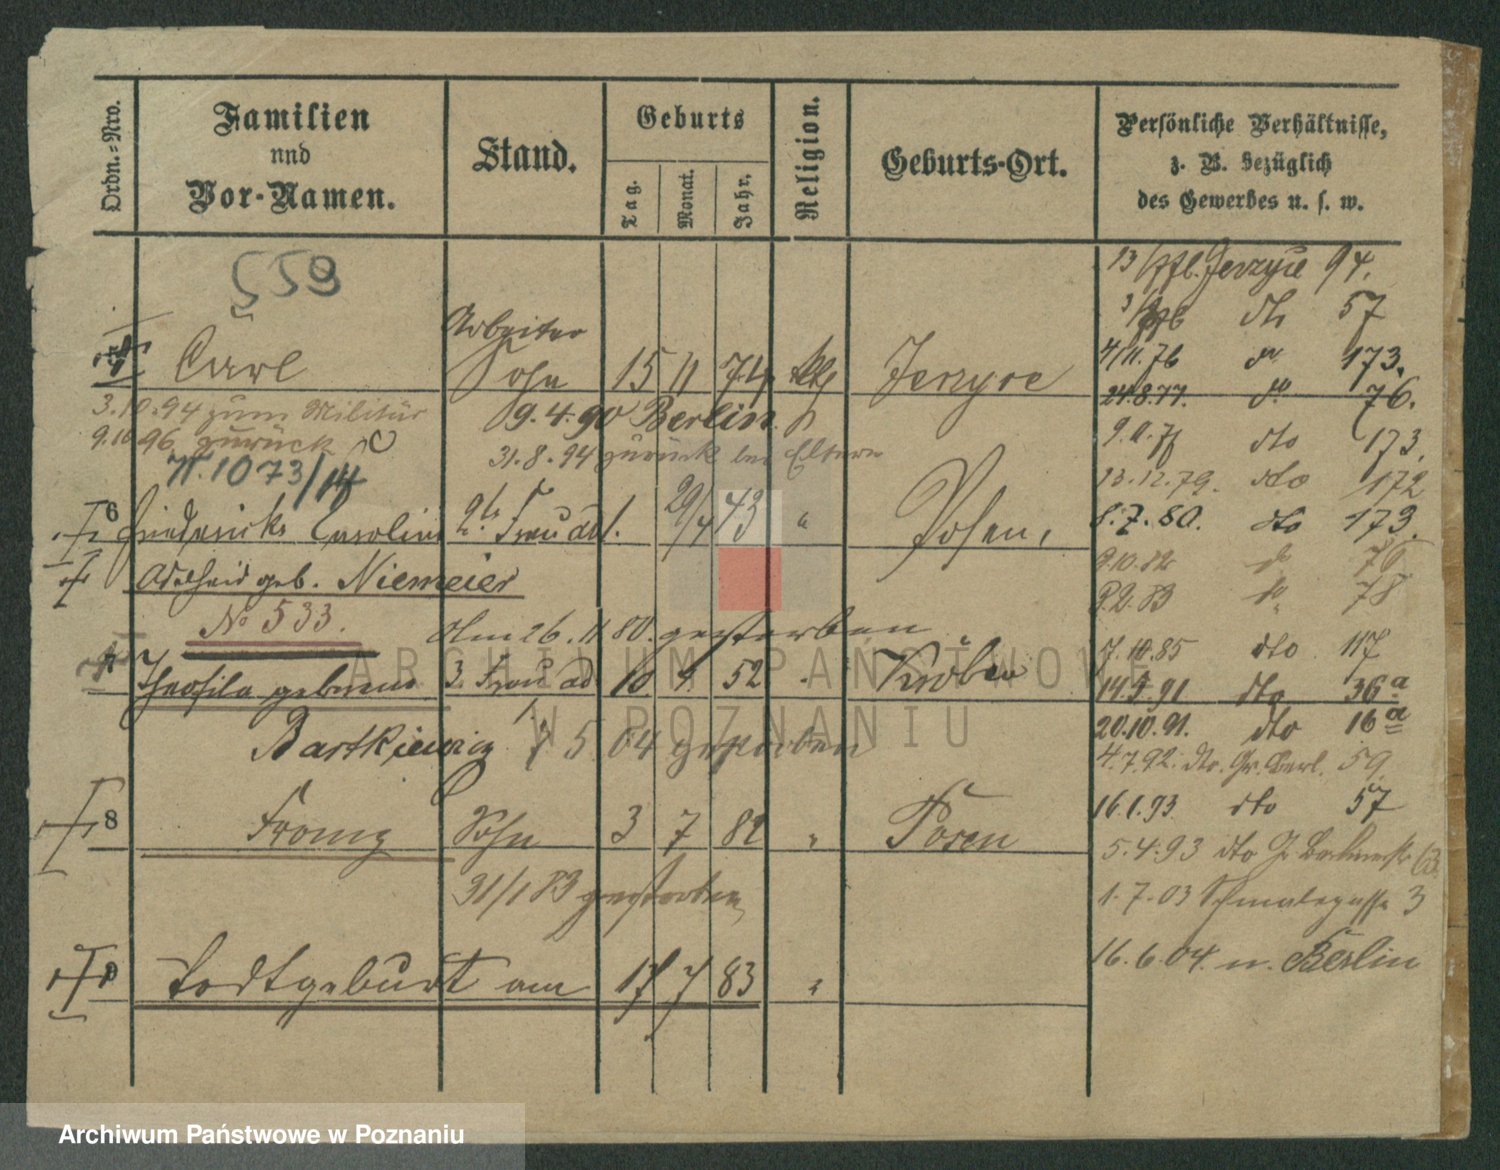 Ordn.-Nro.
Familien
und
Vor-Namen.
Stand.
Geburts
Tag.
Monat.
Jahr.
Religion.
Geburts-Ort.
Persönliche Verhältnisse,
z. B. bezüglich
des Gewerbes u. s. w.
559
13/ Jerzyce 94.
dto 57
Arbeiter
Carl Sohn 15 11 74 kth Jerzyce
4/11.76 dto 173.
24.8.77. dto 76.
3.10.94 zum Militär
9.4.90 Berlin.
9.10.96 zurück
31.8.94 zurück bei Eltern
9.11.77 dto 173.
N. 1073/14
13.12.79. dto 172
6 Friederike Caroline 2te Frau ad 1. 29/4 43 " Posen,
8.7.80. dto 173.
Adelheid geb. Niemeier
9.10.82 do 76
9.2.83 do 78
No 533.
Am 26.11.80. gestorben
7.10.85 dto 117
7 Theofila geborene 3. Frau ad 1 52 Kröben
14.5.91 dto 36a
Bartkiewicz
7 5 04 gestorben
20.10.91. dto 16a
4.7.92. dto. Gr. Berl. 59.
8 Franz Sohn 3 7 82 " Posen
16.1.93 dto 57
5.4.93 dto Gr Berlinerstr 63
31/1 83 gestorben
1.7.03 Schmalegasse 3
9 Todtgeburt am 17 7 83 "
16.6.04. n. Berlin
ARCHIWUM PAŃSTWOWE
W POZNANIU
Archiwum Państwowe w Poznaniu